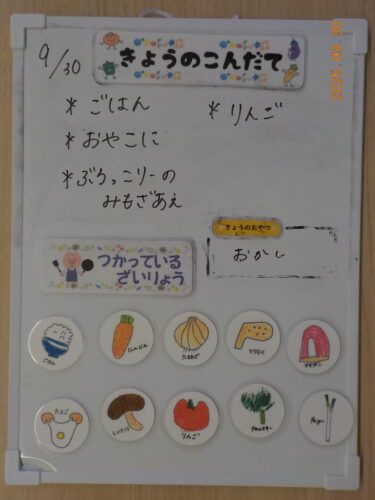 きょうのこんだて
9/30
*ごはん
*おやこに
*ぶろっこりーの
みもざあえ
*りんご
きょうのおやつ
おかし
つかっている
ざいりょう
ごはん
にんじん
たまねぎ
とりにく
かまぼこ
たまご
しいたけ
りんご